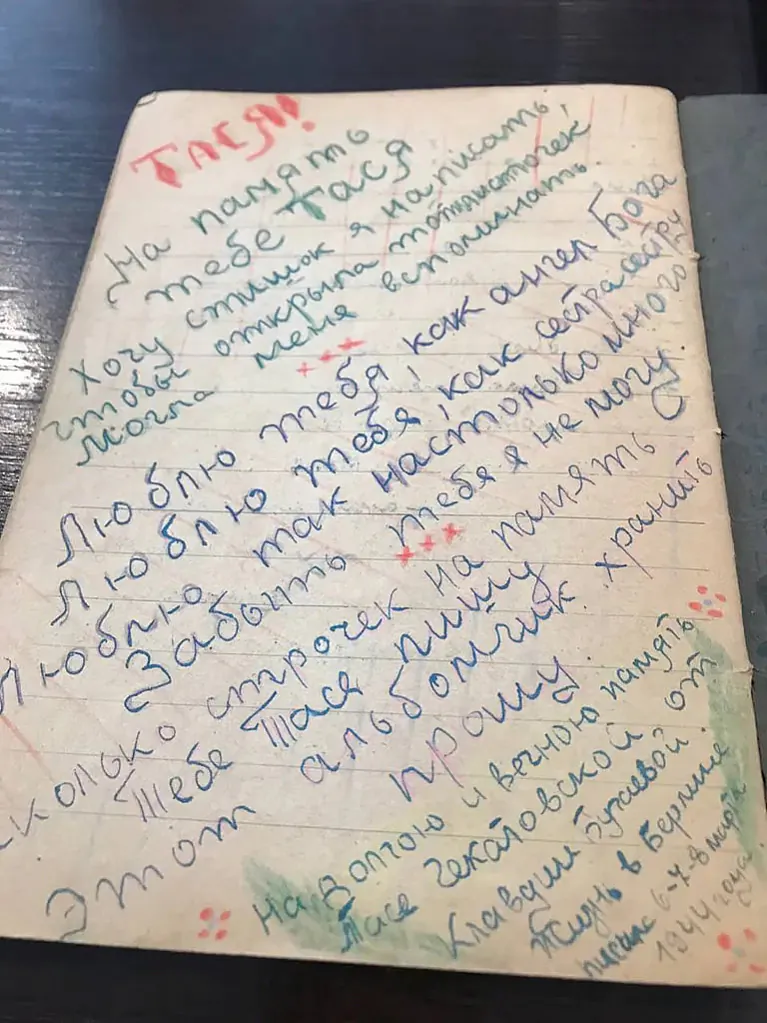 ТАСЯ!
На память
тебе Тася
Хочу стишок я написать,
чтобы открыла тот листочек
могла меня вспоминать.
Люблю тебя, как ангел Бога
Люблю тебя, как сетра сестру
Люблю так настолько много
Забыть тебя я не могу.
сколько строчек на память
Тебе Тася пишу
Этот альбомчик хранить
прошу.
На долгою и вечною память
Тасе Чекатовской от
Клавдии Бугаевой.
Жизнь в Берлине
писала 6-7-8 марта
1944 года.